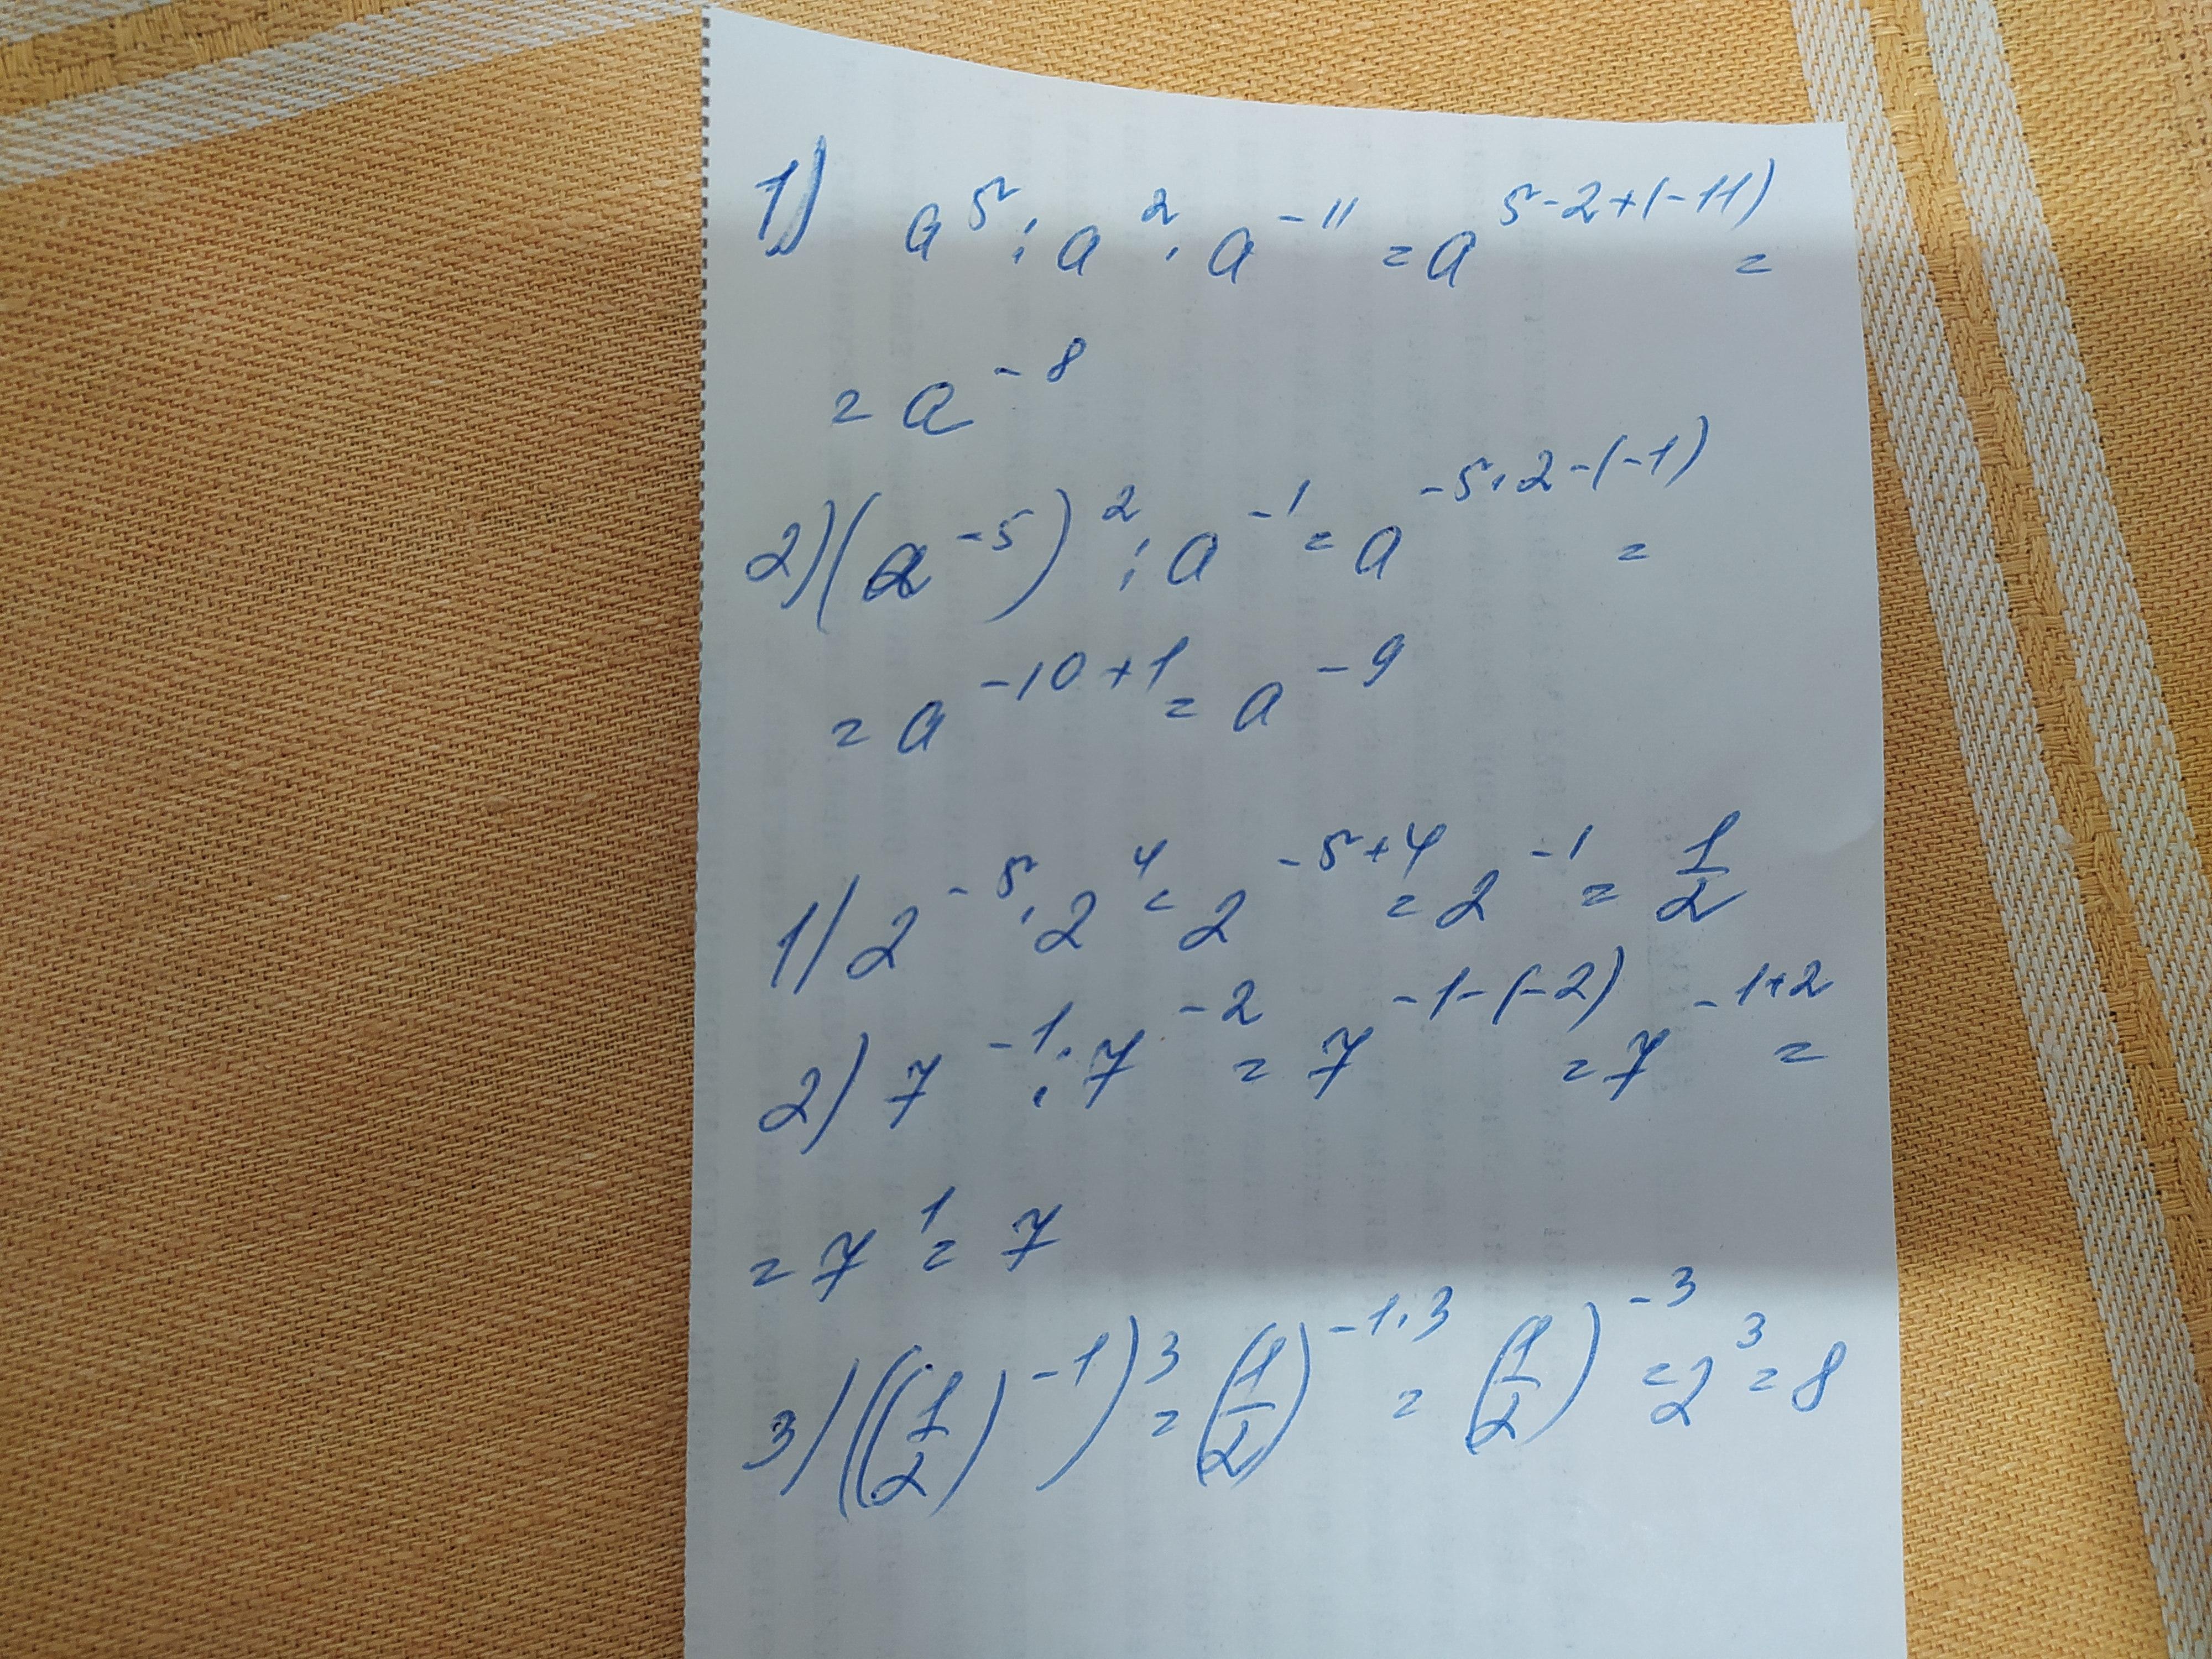 1) a⁵ : a² · a⁻¹¹ = a⁵⁻²⁺⁽⁻¹¹⁾ =
= a⁻⁸
2) (a⁻⁵)² : a⁻¹ = a⁻⁵·²⁻⁽⁻¹⁾ =
= a⁻¹⁰⁺¹ = a⁻⁹
1) 2⁻⁵ · 2⁴ = 2⁻⁵⁺⁴ = 2⁻¹ = 1/2
2) 7⁻¹ : 7⁻² = 7⁻¹⁻⁽⁻²⁾ = 7⁻¹⁺² =
= 7¹ = 7
3) ((1/2)⁻¹)³ = (1/2)⁻¹·³ = (1/2)⁻³ = 2³ = 8